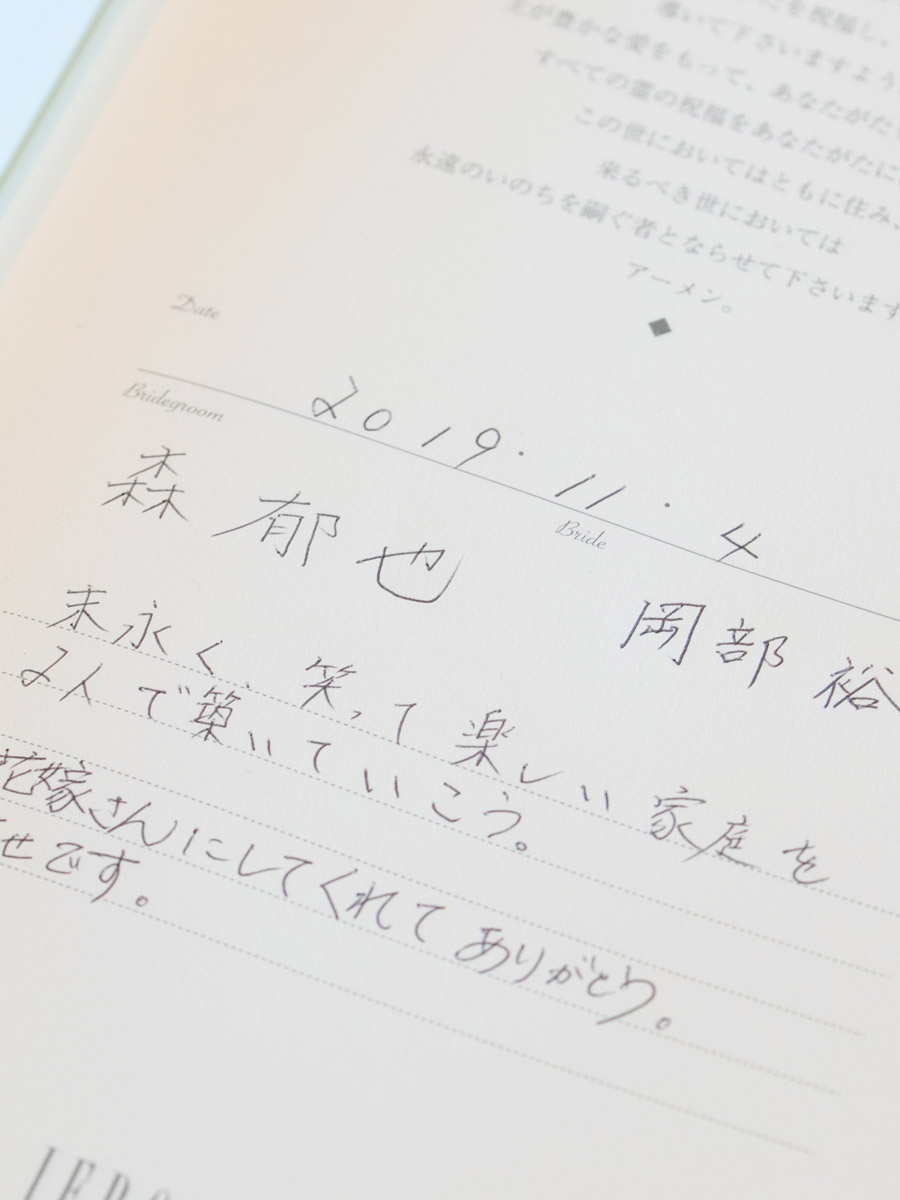 を祝福し、
導いて下さいますよう
主が豊かな愛をもって、あなたがた
すべての霊の祝福をあなたがたに
この世においてはともに住み、
来るべき世においては
永遠のいのちを嗣ぐ者とならせて下さいます
アーメン。
◆
Date
2019.11.4
Bridegroom
森 郁也
Bride
岡部 裕
末永く、笑って楽しい家庭を
2人で築いていこう。
花嫁さんにしてくれてありがとう。
せです。